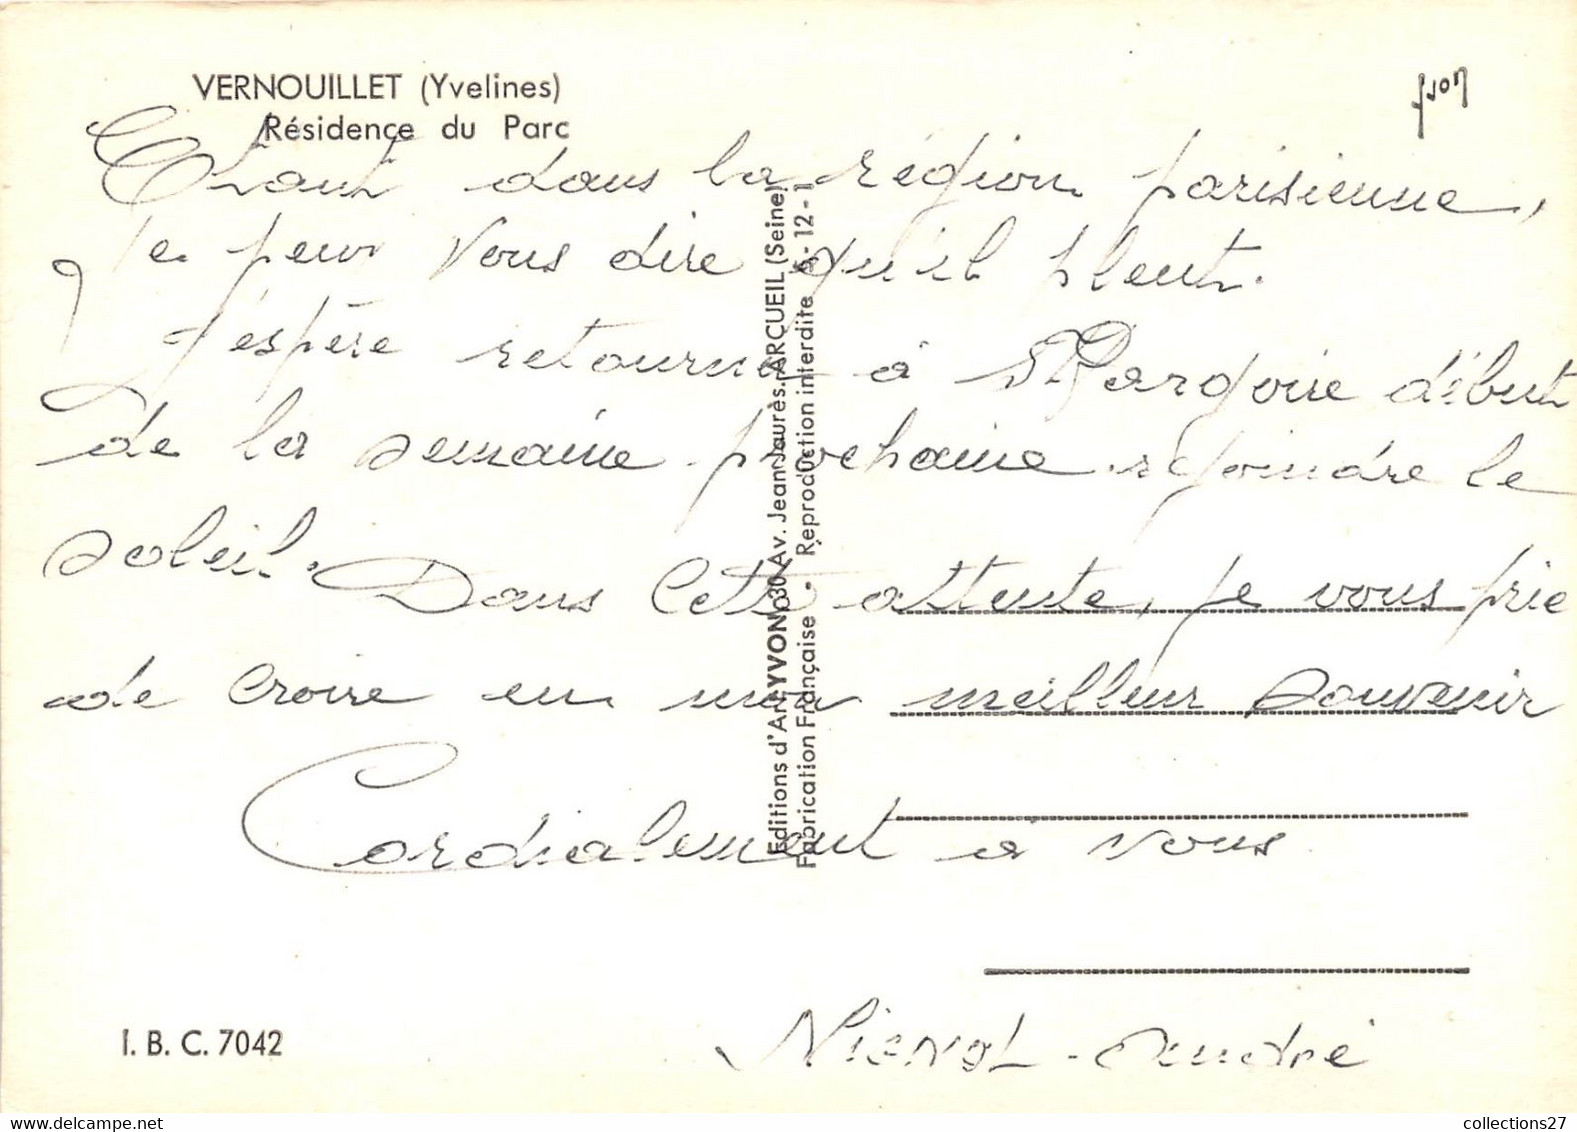 VERNOUILLET (Yvelines)
Résidence du Parc
yvon
Etant dans la région parisienne,
je peux vous dire qu'il pleut.
J'espère retourner à St Pargoire début
de la semaine prochaine rejoindre le
soleil. Dans cette attente, je vous prie
de croire en mon meilleur souvenir
Cordialement à vous
André
Editions d'Art YVON, 30 Av. Jean Jaurès. ARCUEIL (Seine)
Fabrication Française - Reproduction interdite 6 - 12 - 1
I. B. C. 7042
collections27